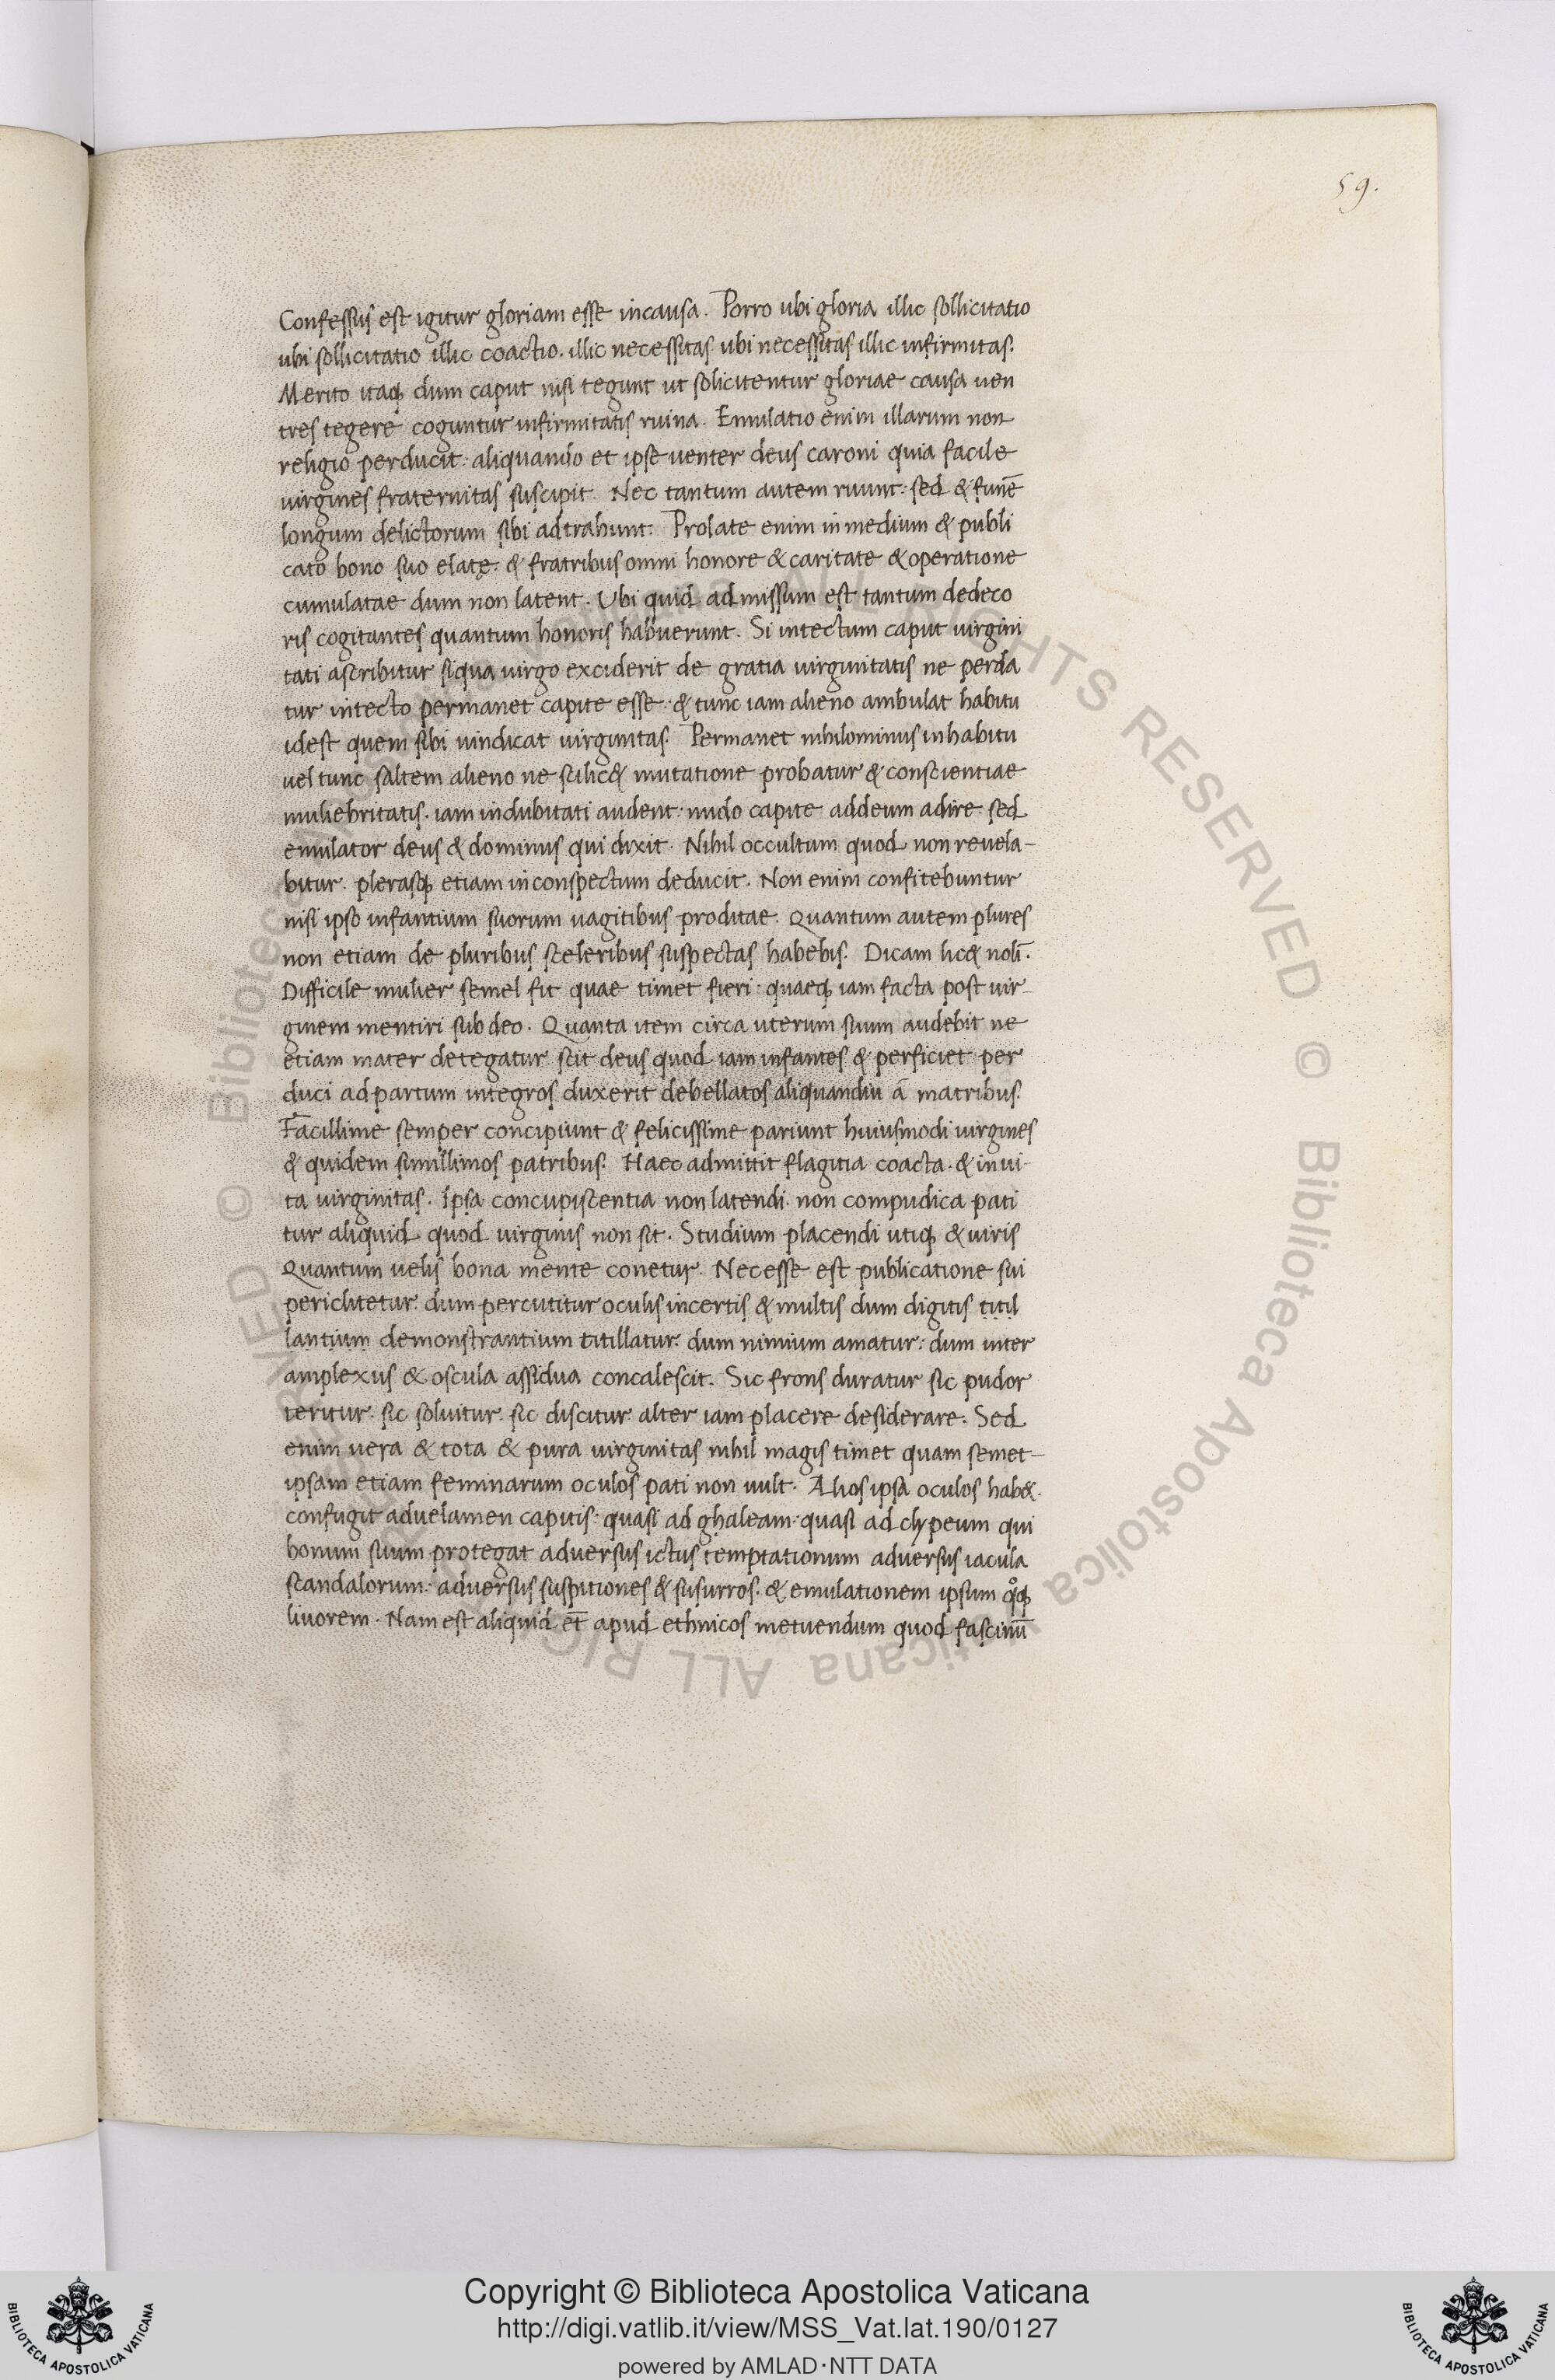 59.
Confessus est igitur gloriam esse incausa. Porro ubi gloria illic sollicitatio
ubi sollicitatio illic coactio. illic necessitas ubi necessitas illic infirmitas.
Merito itaq; dum caput nisi tegunt ut solicitentur gloriae causa uen
tres tegere coguntur infirmitatis ruina. Emulatio enim illarum non
religio perducit: aliquando et ipse uenter deus caroni quia facile
virgines fraternitas suscipit. Nec tantum autem ruunt: sed & funē
longum delictorum sibi adtrahunt. Prolate enim in medium & publi
cato bono suo elatę. & fratribus omni honore & caritate & operatione
cumulatae dum non latent. Ubi quid admissum est tantum dedeco
ris cogitantes quantum honoris habuerunt. Si intectum caput virgini
tati ascribitur siqua virgo exciderit de gratia virginitatis ne perda
tur intecto permanet capite esse: & tunc iam alieno ambulat habitu
idest quem sibi uindicat uirginitas. Permanet nihilominus inhabitu
uel tunc saltem alieno ne scilic& mutatione probatur & conscientiae
muliebritatis. iam indubitati audent: nudo capite addeum adire: sed
emulator deus & dominus qui dixit. Nihil occultum quod non reuela-
bitur. plerasq; etiam inconspectum deducit. Non enim confitebuntur
nisi ipso infantium suorum uagitibus proditae. Quantum autem plures
non etiam de pluribus sceleribus suspectas habebis. Dicam lic& nolī.
Difficile mulier semel fit quae timet fieri: quaeq; iam facta post uir-
ginem mentiri sub deo. Quanta item circa uterum suum audebit ne
etiam mater detegatur scit deus quod iam infantes & perficiet per
duci ad partum integros duxerit debellatos aliquandiu ā matribus.
Facillime semper concipiunt & felicissime pariunt huiusmodi uirgines
& quidem simillimos patribus. Haec admittit flagitia coacta. & inui-
ta virginitas. Ipsa concupiscentia non latendi. non compudica pati
tur aliquid quod uirginis non sit. Studium placendi utiq; & uiris
Quantum uelis bona mente conetur. Necesse est publicatione sui
periclitetur. dum percutitur oculis incertis & multis dum digitis titil
lantium demonstrantium titillatur: dum nimium amatur: dum inter
amplexus & oscula assidua concalescit. Sic frons duratur sic pudor
teritur. sic soluitur. sic discitur alter iam placere desiderare. Sed
enim vera & tota & pura uirginitas nihil magis timet quam semet-
ipsam etiam feminarum oculos pati non uult. Alios ipsa oculos hab&.
confugit aduelamen capitis: quasi ad ghaleam: quasi ad clypeum qui
bonum suum protegat aduersus ictus temptationum aduersus iacula
scandalorum: aduersus suspitiones & susurros. & emulationem ipsum qͦq;
liuorem. Nam est aliquid et̄ apud ethnicos metuendum quod fascinū
Copyright © Biblioteca Apostolica Vaticana
http://digi.vatlib.it/view/MSS_Vat.lat.190/0127
powered by AMLAD·NTT DATA
BIBLIOTECA APOSTOLICA VATICANA
BIBLIOTECA APOSTOLICA VATICANA